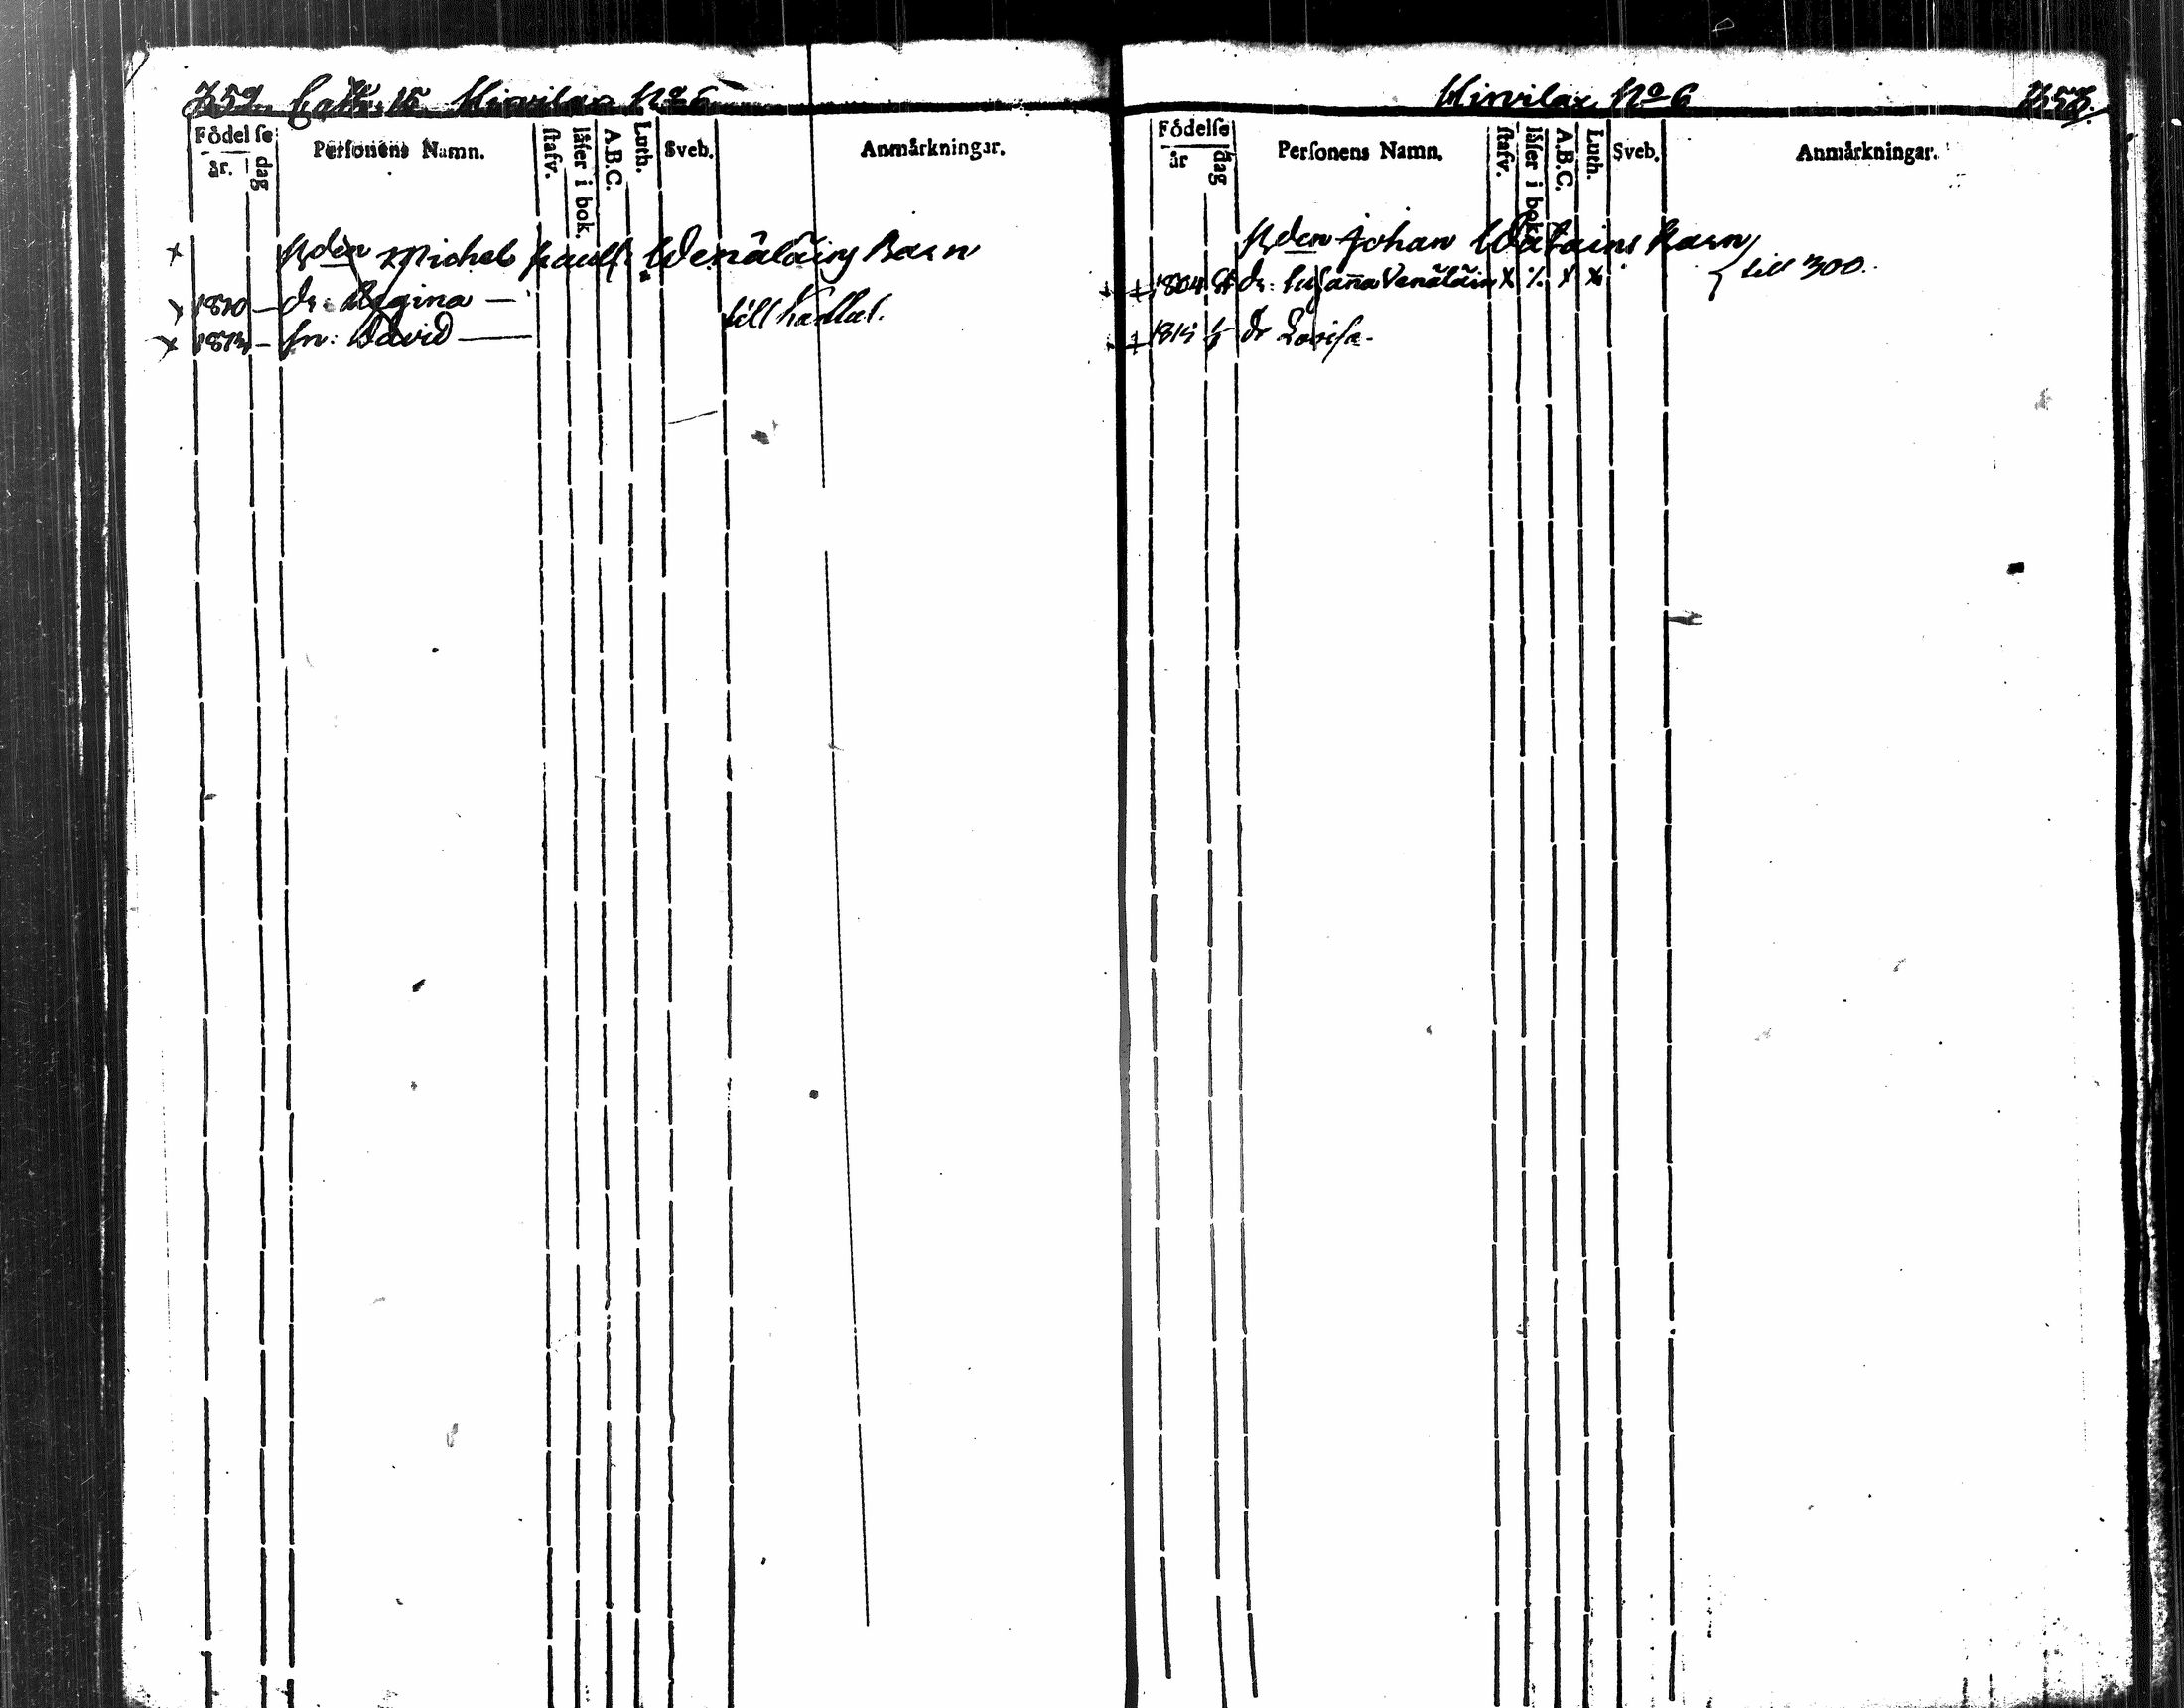 Hirvilax No 6
Födel ſe
år. dag
Perſonens Namn.
ſtafv.
läſer i bok.
A.B.C.
Luth.
Sveb.
Anmärkningar.
Bden Michel Paulſ. Wenäläins Barn
1810 — dr: Regina —
till Kadlat.
1813 — ſn: David —
Hirvilax No 6
Födelſe
år dag
Perſonens Namn.
ſtafv.
läſer i bok.
A.B.C.
Luth.
Sveb.
Anmärkningar.
Bden Johan Barn
1804 dr: Suſana Venäläin x % x x
till 300.
1815 dr Lovisa